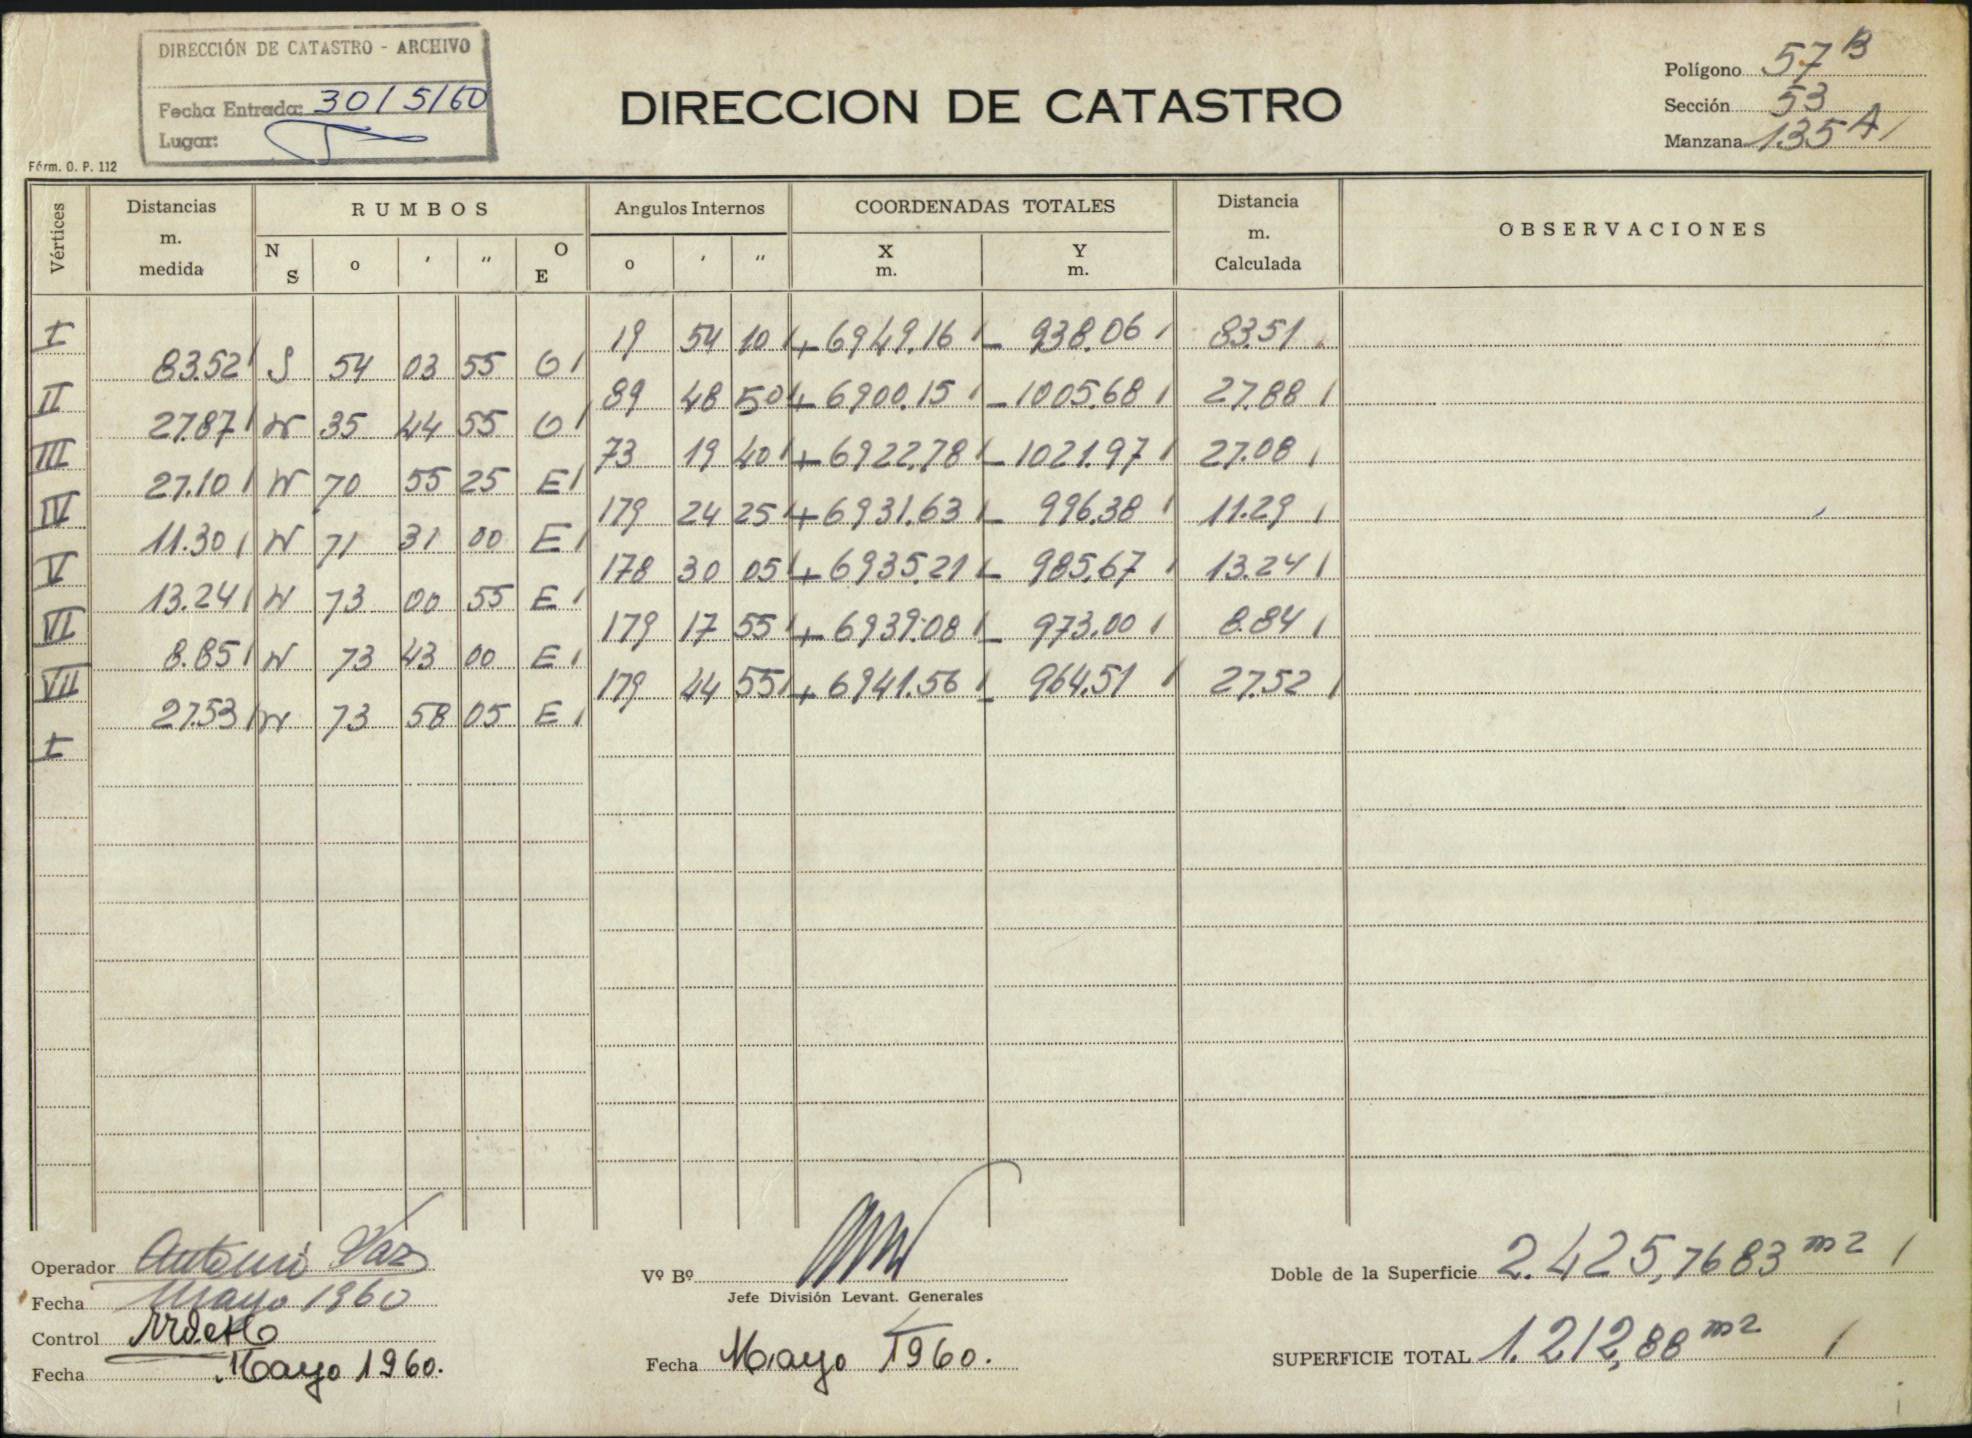 DIRECCIÓN DE CATASTRO - ARCHIVO
Fecha Entrada: 30/5/60
Lugar:
Fórm. O. P. 112
DIRECCION DE CATASTRO
Polígono 57 B
Sección 53
Manzana 135 A
Vértices
Distancias m. medida
RUMBOS
N S o ' " O E
Angulos Internos
o ' "
COORDENADAS TOTALES
X m. Y m.
Distancia m. Calculada
OBSERVACIONES
I 19 54 10 + 6949.16 - 938.06 83.51
83.52 S 54 03 55 O
II 89 48 50 + 6900.15 - 1005.68 27.88
27.87 N 35 44 55 O
III 73 19 40 + 6922.78 - 1021.97 27.08
27.10 N 70 55 25 E
IV 179 24 25 + 6931.63 - 996.38 11.29
11.30 N 71 31 00 E
V 178 30 05 + 6935.21 - 985.67 13.24
13.24 N 73 00 55 E
VI 179 17 55 + 6939.08 - 973.00 8.84
8.85 N 73 43 00 E
VII 179 44 55 + 6941.56 - 964.51 27.52
27.53 N 73 58 05 E
I
Operador Antonio Vaz
Fecha Mayo 1960
Control
Fecha Mayo 1960.
Vº Bº
Jefe División Levant. Generales
Fecha Mayo 1960.
Doble de la Superficie 2.425,7683 m2
SUPERFICIE TOTAL 1.212,88 m2